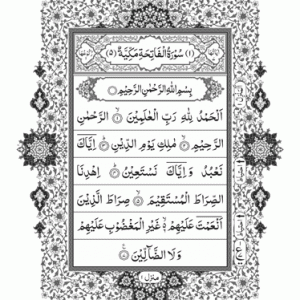 (١) سُوْرَةُ الْفَاتِحَةِ مَكِّيَّةٌ (٥)
بِسْمِ اللّٰهِ الرَّحْمٰنِ الرَّحِيْمِ
اَلْحَمْدُ لِلّٰهِ رَبِّ الْعٰلَمِيْنَ ۙ الرَّحْمٰنِ
الرَّحِيْمِ ۙ مٰلِكِ يَوْمِ الدِّيْنِ ؕ اِيَّاكَ
نَعْبُدُ وَ اِيَّاكَ نَسْتَعِيْنُ ؕ اِهْدِنَا
الصِّرَاطَ الْمُسْتَقِيْمَ ۙ صِرَاطَ الَّذِيْنَ
اَنْعَمْتَ عَلَيْهِمْ ۙ غَيْرِ الْمَغْضُوْبِ عَلَيْهِمْ
وَ لَا الضَّآلِّيْنَ
منزل ١